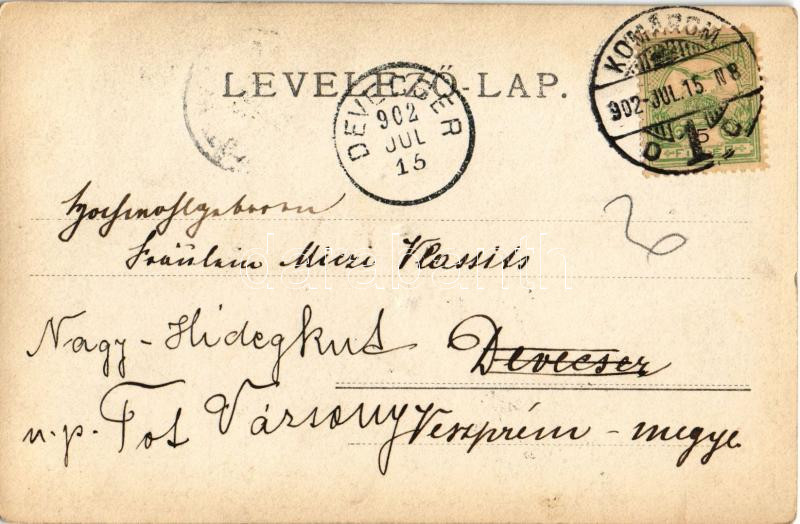 LEVELEZŐ-LAP.
DEVECSER
902
JUL
15
KOMÁROM
902-JUL.15 N8
1
Hochwohlgeboren
Fräulein Miczi Vlassits
Nagy-Hidegkut Devecser
u.p. Tót Vázsony Veszprém-megye
darabanth